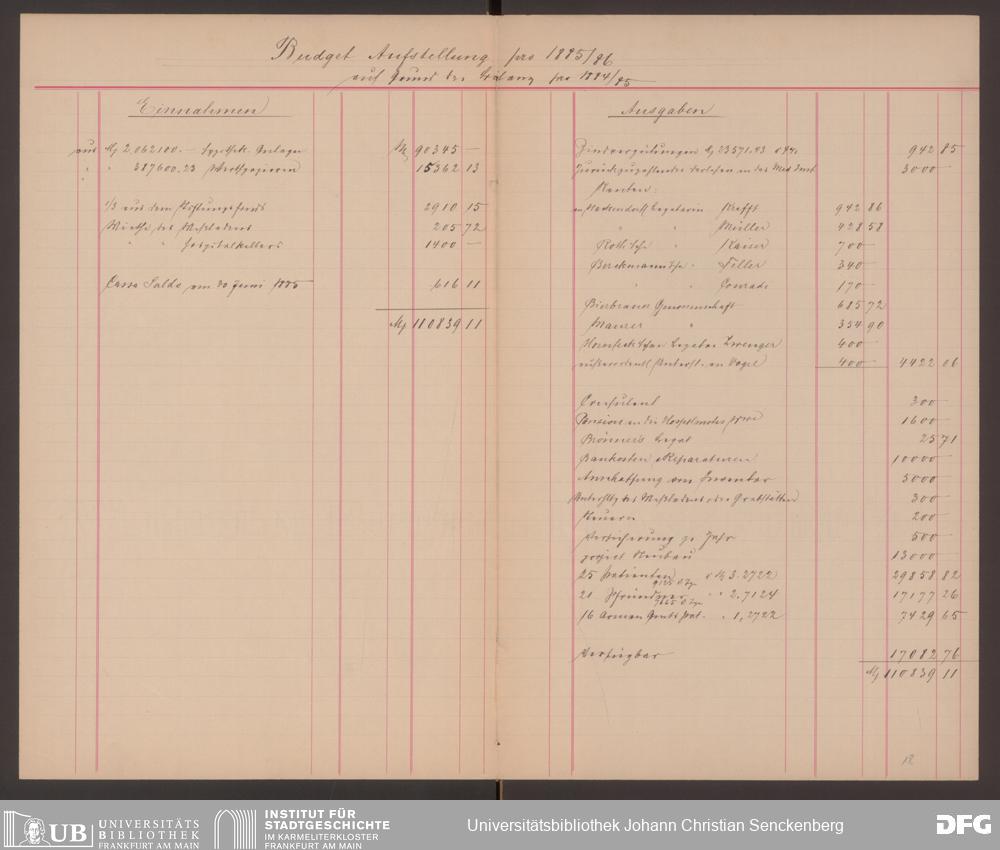 Budget Aufstellung pro 1885/86
auf Grund der Bilanz pro 1884/85
Einnahmen
aus M 2,062100.— Hypothek. Anlagen M 90345 —
" " 387600.23 Werthpapieren 15362 13
1/3 aus dem Stiftungsfonds 2910 15
Miethe des 205 72
" " Hospitalkellers 1400 —
Cassa Saldo am 30 Juni 1885 616 11
M 110839 11
Ausgaben
Zinsvergütungen M 23571.43 a 4% 942 85
Zurückzuzahlendes Darlehen an das Med. Inst 3000 —
Renten:
an Legatarin Krafft 942 86
" " Müller 428 58
Roth'sche " Kaiser 700 —
Berckmann'sche " Feller 340 —
" " Conradi 170 —
Bierbrauer Genossenschaft 685 72
Maurer " 354 90
Legatar Zwenger 400 —
außerordentl. Unterst. an Vogel 400 — 4422 06
Consulent 300 —
Pension an die Hospitalmeisters Wwe 1600 —
Brönner's Legat 25 71
Baukosten & Reparaturen 10000 —
Anschaffung von Inventar 5000 —
Unterhltg des & der Grabstätten 300 —
Steuern 200 —
Versicherung pr Jahr 500 —
project Neubau 13000 —
25 Patienten 9125 V.Tge a M 3.2722 29858 82
21 Pfründner 7665 V.Tge " " 2.7124 17177 26
16 Armen " 1,2722 7429 65
Verfügbar 17082 76
M 110839 11
18
UB UNIVERSITÄTS
BIBLIOTHEK
FRANKFURT AM MAIN
INSTITUT FÜR
STADTGESCHICHTE
IM KARMELITERKLOSTER
FRANKFURT AM MAIN
Universitätsbibliothek Johann Christian Senckenberg
DFG